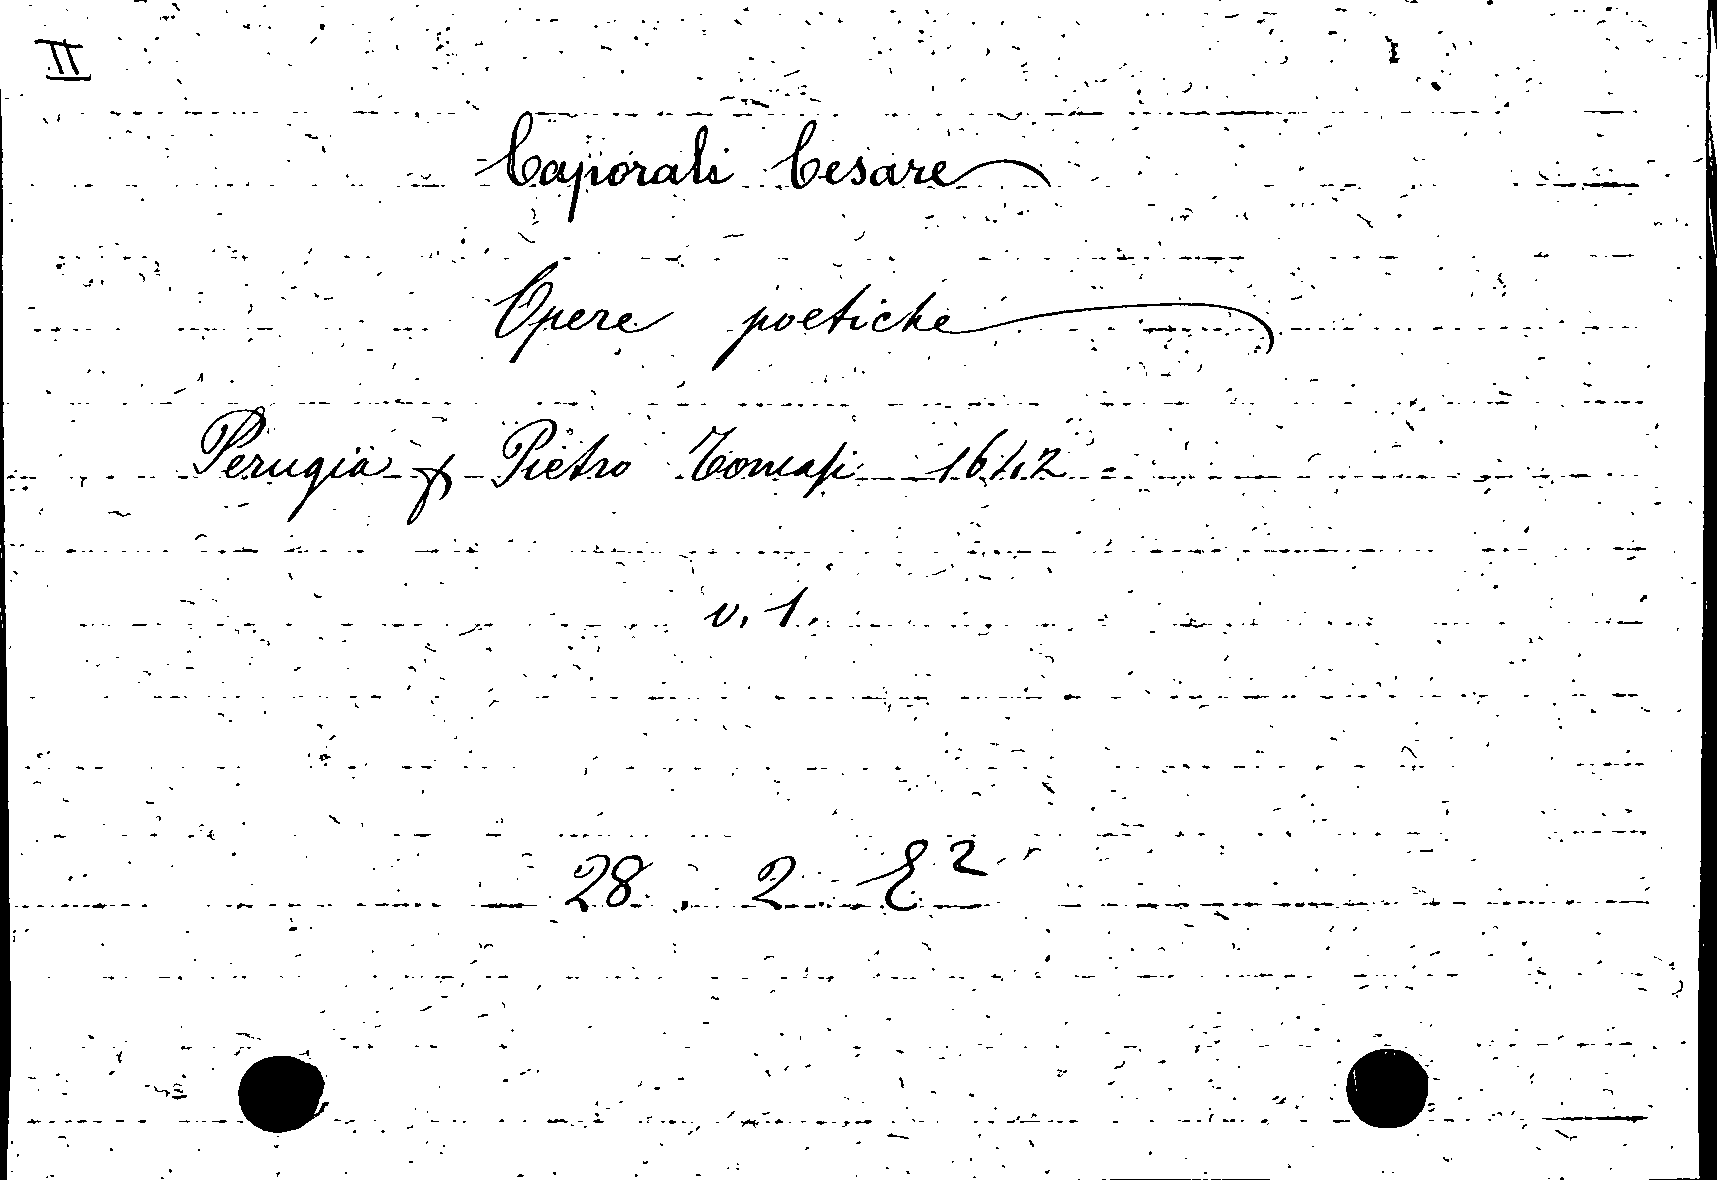 II
Caporali Cesare
Opere poetiche
Perugia Pietro Tomasi 1642
v. 1.
28. 2. E²